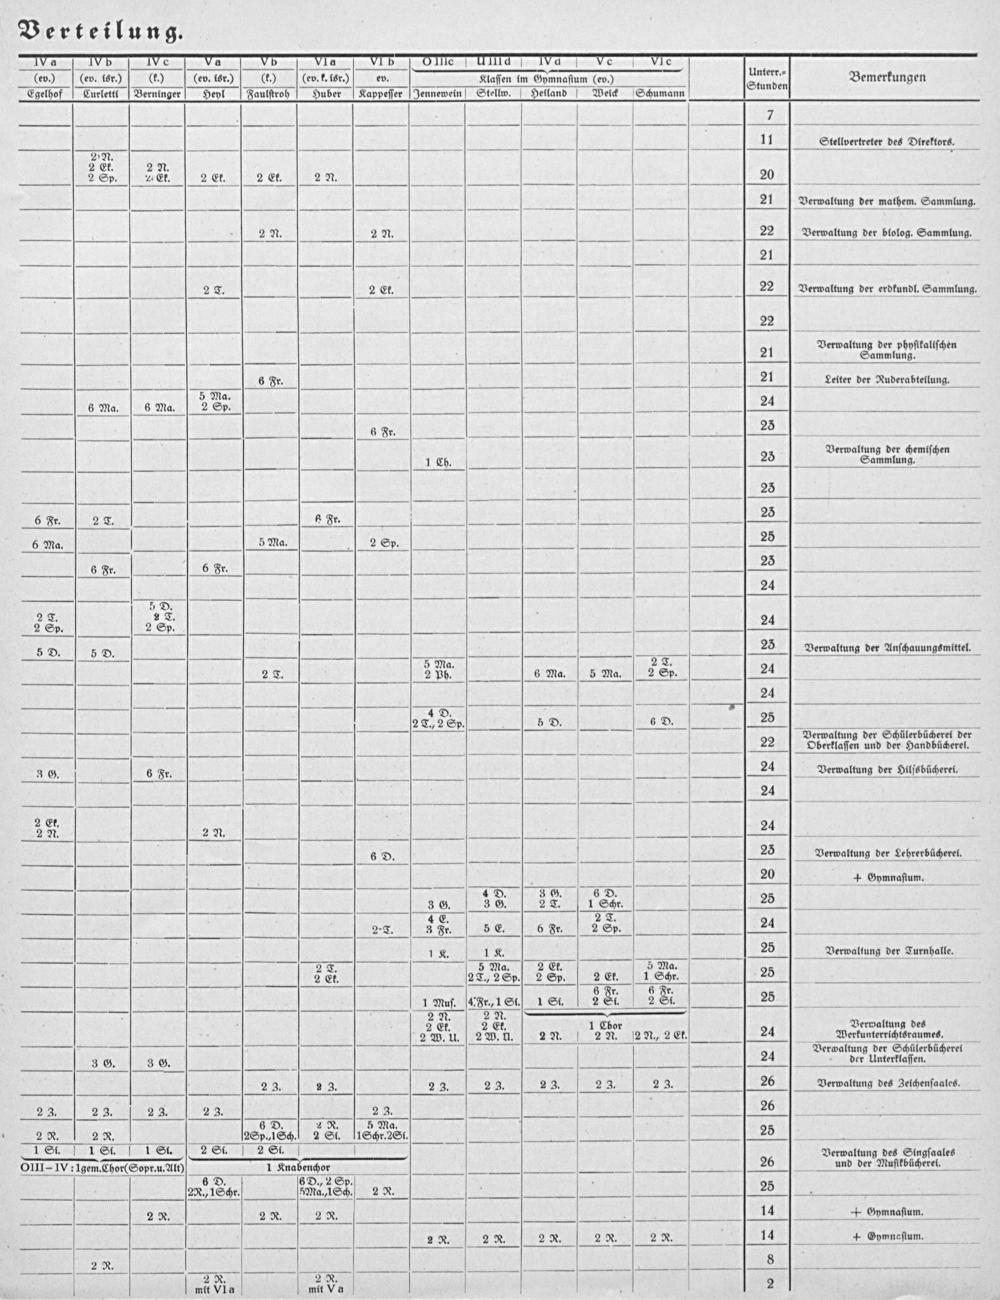 Verteilung.
IV a IV b IV c V a V b VI a VI b O III c U III d IV d V c VI c
(ev.) (ev. isr.) (k.) (ev. isr.) (k.) (ev. k. isr.) ev. Klassen im Gymnasium (ev.) Unterr.- Stunden Bemerkungen
Egelhof Curletti Berninger Heyl Faulstroh Huber Kappesser Jennewein Stellw. Heiland Weick Schumann
7
11 Stellvertreter des Direktors.
2 N.
2 Ek. 2 N.
2 Sp. 2 Ek. 2 Ek. 2 Ek. 2 N. 20
21 Verwaltung der mathem. Sammlung.
2 N. 2 N. 22 Verwaltung der biolog. Sammlung.
21
2 T. 2 Ek. 22 Verwaltung der erdkundl. Sammlung.
22
Verwaltung der physikalischen
21 Sammlung.
6 Fr. 21 Leiter der Ruderabteilung.
5 Ma.
6 Ma. 6 Ma. 2 Sp. 24
6 Fr. 23
Verwaltung der chemischen
1 Ch. 23 Sammlung.
23
6 Fr. 2 T. 6 Fr. 23
6 Ma. 5 Ma. 2 Sp. 25
6 Fr. 6 Fr. 23
24
5 D.
2 T. 2 T.
2 Sp. 2 Sp. 24
5 D. 5 D. 23 Verwaltung der Anschauungsmittel.
5 Ma. 2 T.
2 T. 2 Ph. 6 Ma. 5 Ma. 2 Sp. 24
24
4 D.
2 T., 2 Sp. 5 D. 6 D. 25
Verwaltung der Schülerbücherei der
22 Oberklassen und der Handbücherei.
3 G. 6 Fr. 24 Verwaltung der Hilfsbücherei.
24
2 Ek.
2 N. 2 N. 24
6 D. 23 Verwaltung der Lehrerbücherei.
20 + Gymnasium.
4 D. 3 G. 6 D.
3 G. 3 G. 2 T. 1 Schr. 25
4 E. 2 T.
2 T. 3 Fr. 5 E. 6 Fr. 2 Sp. 24
1 K. 1 K. 25 Verwaltung der Turnhalle.
2 T. 5 Ma. 2 Ek. 5 Ma.
2 Ek. 2 T., 2 Sp. 2 Sp. 2 Ek. 1 Schr. 25
6 Fr. 6 Fr.
1 Mus. 4 Fr., 1 Si. 1 Si. 2 Si. 2 Si. 25
2 N. 2 N. 1 Chor Verwaltung des
2 Ek. 2 Ek.
2 W. U. 2 W. U. 2 N. 2 N. 2 N., 2 Ek. 24 Werkunterrichtsraumes.
Verwaltung der Schülerbücherei
3 G. 3 G. 24 der Unterklassen.
2 Z. 2 Z. 2 Z. 2 Z. 2 Z. 2 Z. 2 Z. 26 Verwaltung des Zeichensaales.
2 Z. 2 Z. 2 Z. 2 Z. 2 Z. 26
6 D. 2 R. 5 Ma.
2 R. 2 R. 2Sp.,1Sch. 2 Si. 1Schr.2Si. 25
1 Si. 1 Si. 1 Si. 2 Si. 2 Si. Verwaltung des Singsaales
OIII—IV: 1gem.Chor(Sopr.u.Alt) 1 Knabenchor 26 und der Musikbücherei.
6 D. 6 D., 2 Sp.
2R., 1Schr. 5Ma.,1Sch. 2 R. 25
2 R. 2 R. 2 R. 14 + Gymnasium.
2 R. 2 R. 2 R. 2 R. 2 R. 14 + Gymnasium.
2 R. 8
2 R. 2 R.
mit VI a mit V a 2